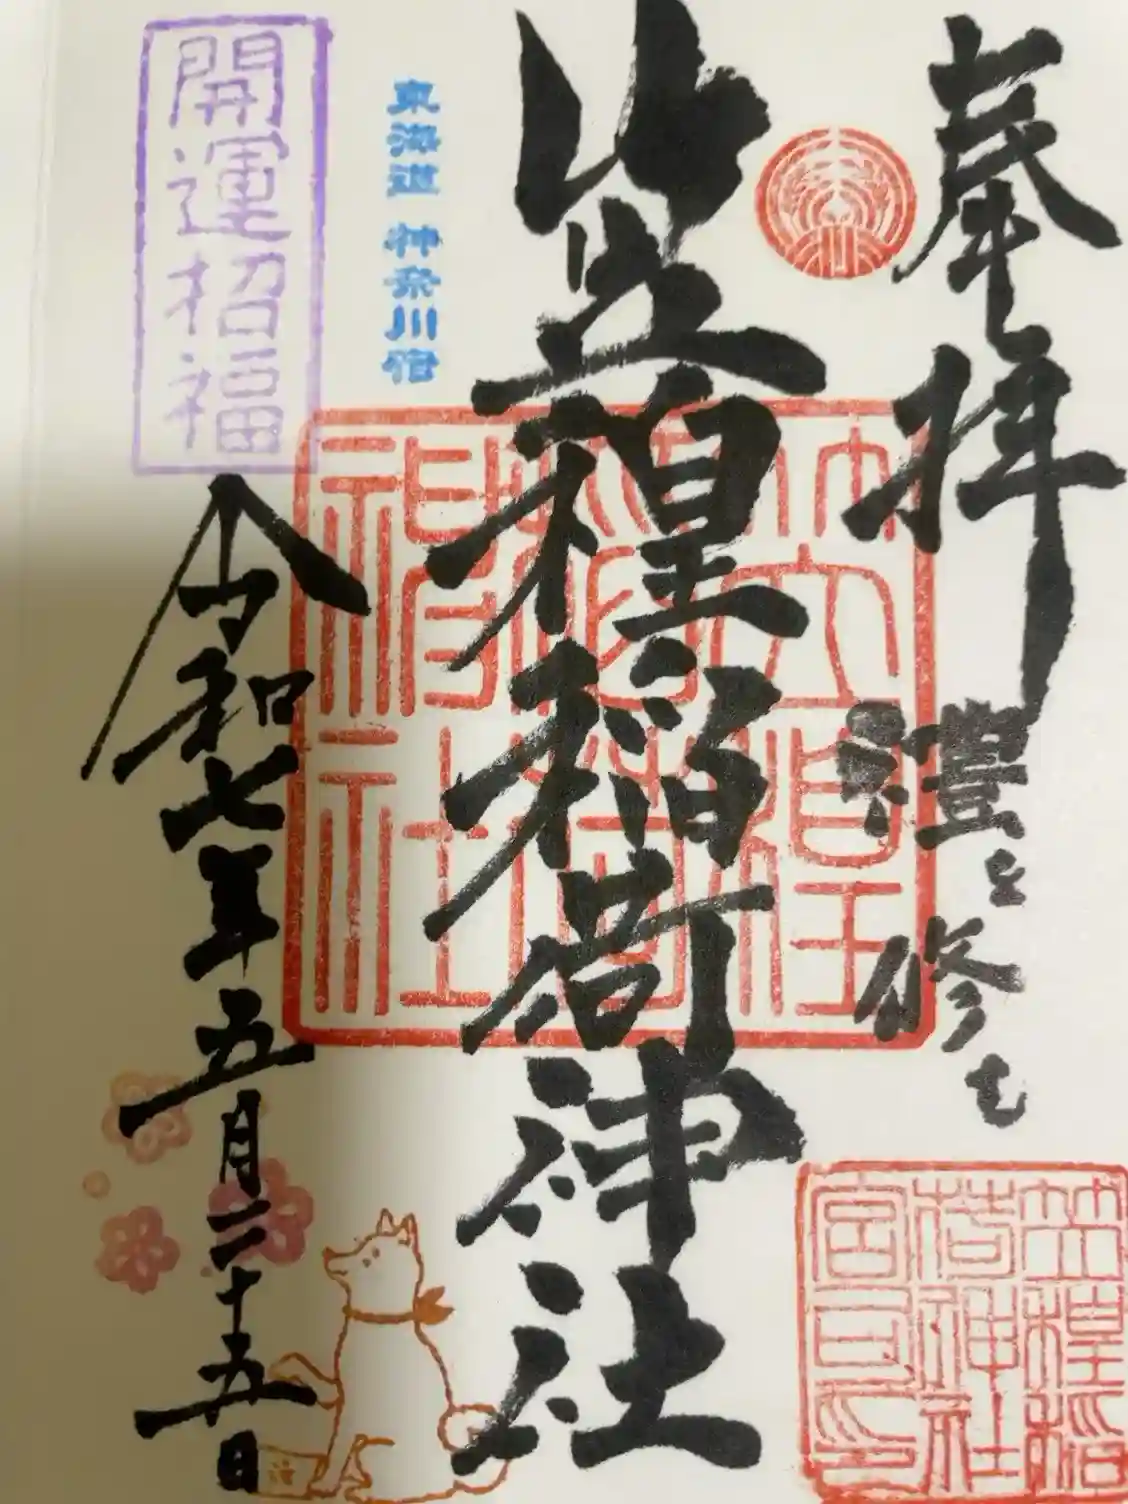 奉拝
禮を修む
笠䅣稲荷神社
笠䅣稲荷神社
笠䅣稲荷神社宮司之印
東海道 神奈川宿
開運招福
令和七年五月二十五日